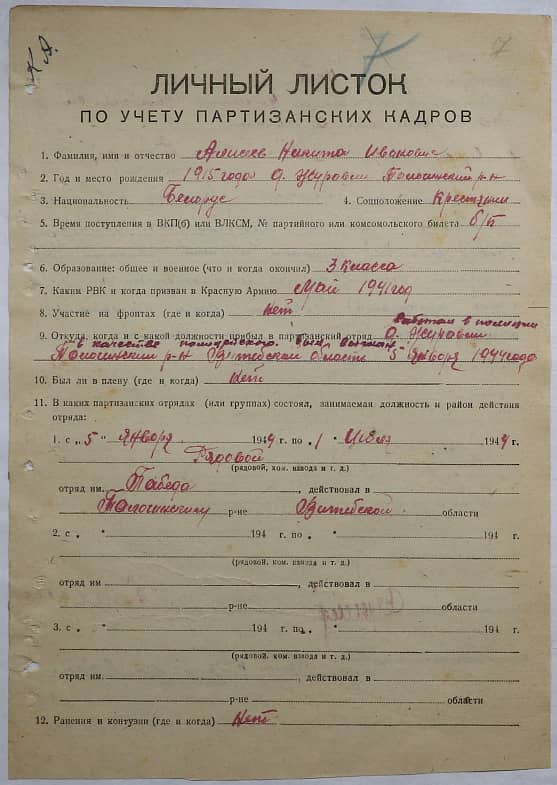 К. А.
7
ЛИЧНЫЙ ЛИСТОК
ПО УЧЕТУ ПАРТИЗАНСКИХ КАДРОВ
1. Фамилия, имя и отчество Никита Иванович
2. Год и место рождения 1915 года д. Журавли р-н
3. Национальность Белорус 4. Соцположение Крестьянин
5. Время поступления в ВКП(б) или ВЛКСМ, № партийного или комсомольского билета б/п
6. Образование: общее и военное (что и когда окончил) 3 класса
7. Каким РВК и когда призван в Красную Армию Май 1941 год
8. Участие на фронтах (где и когда) Нет
Работал в полиции
9. Откуда, когда и с какой должности прибыл в партизанский отряд д. Журавли
в качестве полицейского. Был
р-н Витебской области 5 января 1944 года
10. Был ли в плену (где и когда) Нет
11. В каких партизанских отрядах (или группах) состоял, занимаемая должность и район действия
отряда:
1. с „ 5 " января 1944 г. по „ 1 " 1944 г.
Рядовой
(рядовой, ком. взвода и т. д.)
отряд им. Победа , действовал в
р-не Витебской области
2. с „ " 194 г. по „ " 194 г.
(рядовой, ком. взвода и т. д.)
отряд им. , действовал в
р-не области
3. с „ " 194 г. по „ " 194 г.
(рядовой, ком. взвода и т. д.)
отряд им. , действовал в
р-не области
12. Ранения и контузии (где и когда) Нет